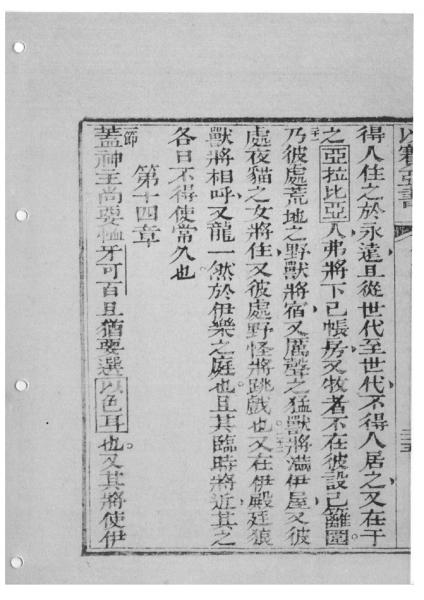 以賽亞書
得人住之於永遠且從世代至世代不得人居之又在于
之亞拉比亞人弗將下己帳房又牧者不在彼設己籬圈。
乃彼處荒地之野獸將宿又厲聲之猛獸將滿伊屋又彼
處夜貓之女將住又彼處野怪將跳戲也。又在伊殿廷猿
獸將相呼又龍一然於伊樂之庭也且其臨時將近其之
各日不得使常久也
第十四章
一節蓋神主尚要恤牙可百且猶要選以色耳也。又其將使伊